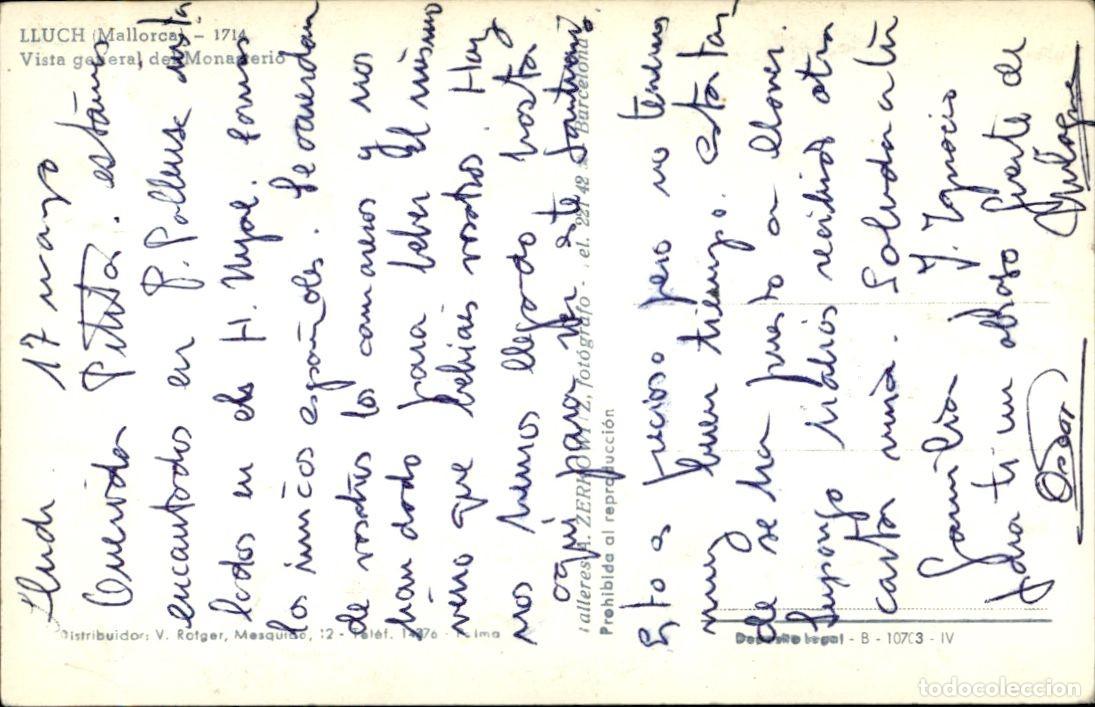 LLUCH (Mallorca) - 1714
Vista general del Monasterio
Lluch. 17 mayo
Querida Pitita. estamos
encantados en P. Pollensa esta
los únicos españoles. Se acuerdan
de vosotros los camareros y nos
han dado para beber el mismo
vino que bebiais vosotros. Hoy
nos hemos llegado hasta
aqui para ver este Santuario.
Esto es precioso pero no tenemos
muy buen tiempo. esta tar
de se ha puesto a llover.
Supongo habras recibido otra
carta mia. Saluda a tu
familia y Ignacio
y para ti un abrazo fuerte de
Oscar
Talleres A. ZERKOWITZ, fotógrafo - Tel. 221 42 - Barcelona
Prohibida al reproducción
Distribuidor: V. Rotger, Mesquida, 12 - Teléf. 14876 - Palma
Depósito Legal - B - 10703 - IV
todocoleccion